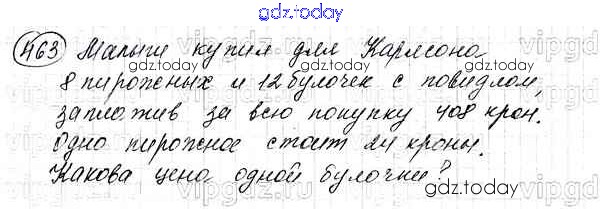 gdz.today
463 Малыш купил для Карлсона
8 пирожных и 12 булочек с повидлом,
заплатив за всю покупку 408 крон.
Одно пирожное стоит 24 кроны.
Какова цена одной булочки?
gdz.today
gdz.today
gdz.today